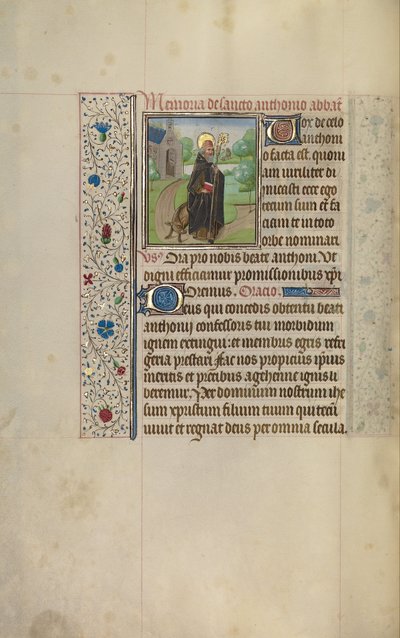 Memoria de sancto anthonio abbat
Vox de celo
anthoni
o facta est. quoni
am viriliter di
micasti ecce ego
tecum sum et fa
ciam te in toto
orbe nominari
Vs Ora pro nobis beate anthoni. Vt
digni efficiamur promissionibus xpi
Oremus. Oracio.
Deus qui concedis obtentu beati
anthonii confessoris tui morbidum
ignem extingui: et membris egris refri
geria prestari fac nos propicius ipius
meritis et precibus a gehenne ignis li
beremur. Per dominum nostrum ihe
sum xpistum filium tuum qui tecū
viuit et regnat deus per omnia secula.